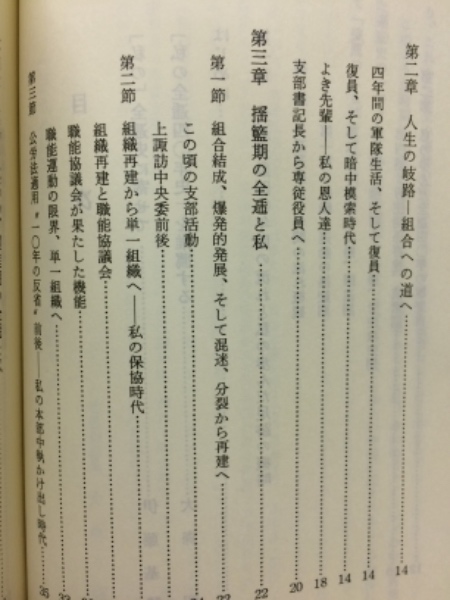 第二章　人生の岐路—組合への道へ……14
四年間の軍隊生活、そして復員……14
復員、そして暗中模索時代……14
よき先輩——私の恩人達……18
支部書記長から専従役員へ……20
第三章　揺籃期の全逓と私……22
第一節　組合結成、爆発的発展、そして混迷、分裂から再建へ……22
この頃の支部活動……
上諏訪中央委前後……
第二節　組織再建から単一組織へ——私の保協時代……
組織再建と職能協議会……
職能協議会が果たした機能……
職能運動の限界、単一組織へ……
第三節　公労法適用〝一〇年の反省〟前後——私の本部中執かけ出し時代……35